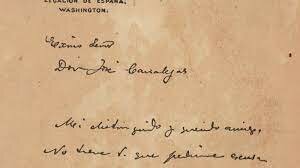 LEGACIÓN DE ESPAÑA,
WASHINGTON.
Exmo Señor
Don José Canalejas
Mi distinguido y querido amigo,
No tiene V. que pedirme excusa